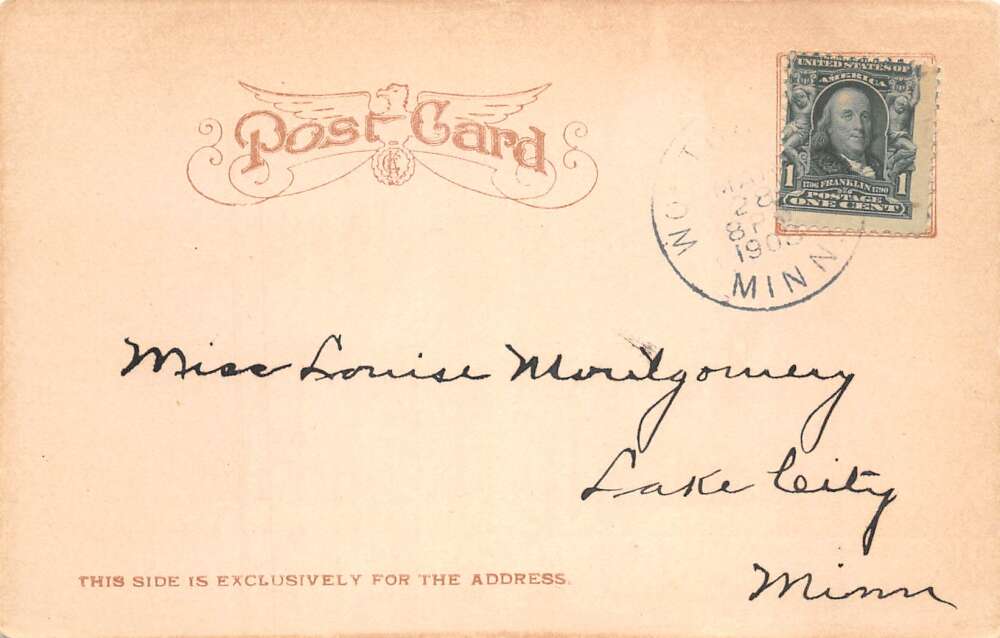 Post Card
UNITED STATES OF
AMERICA
1 1706 FRANKLIN 1790 1
POSTAGE
ONE CENT
28
8 P
MINN
Miss Louise Montgomery
Lake City
Minn
THIS SIDE IS EXCLUSIVELY FOR THE ADDRESS.